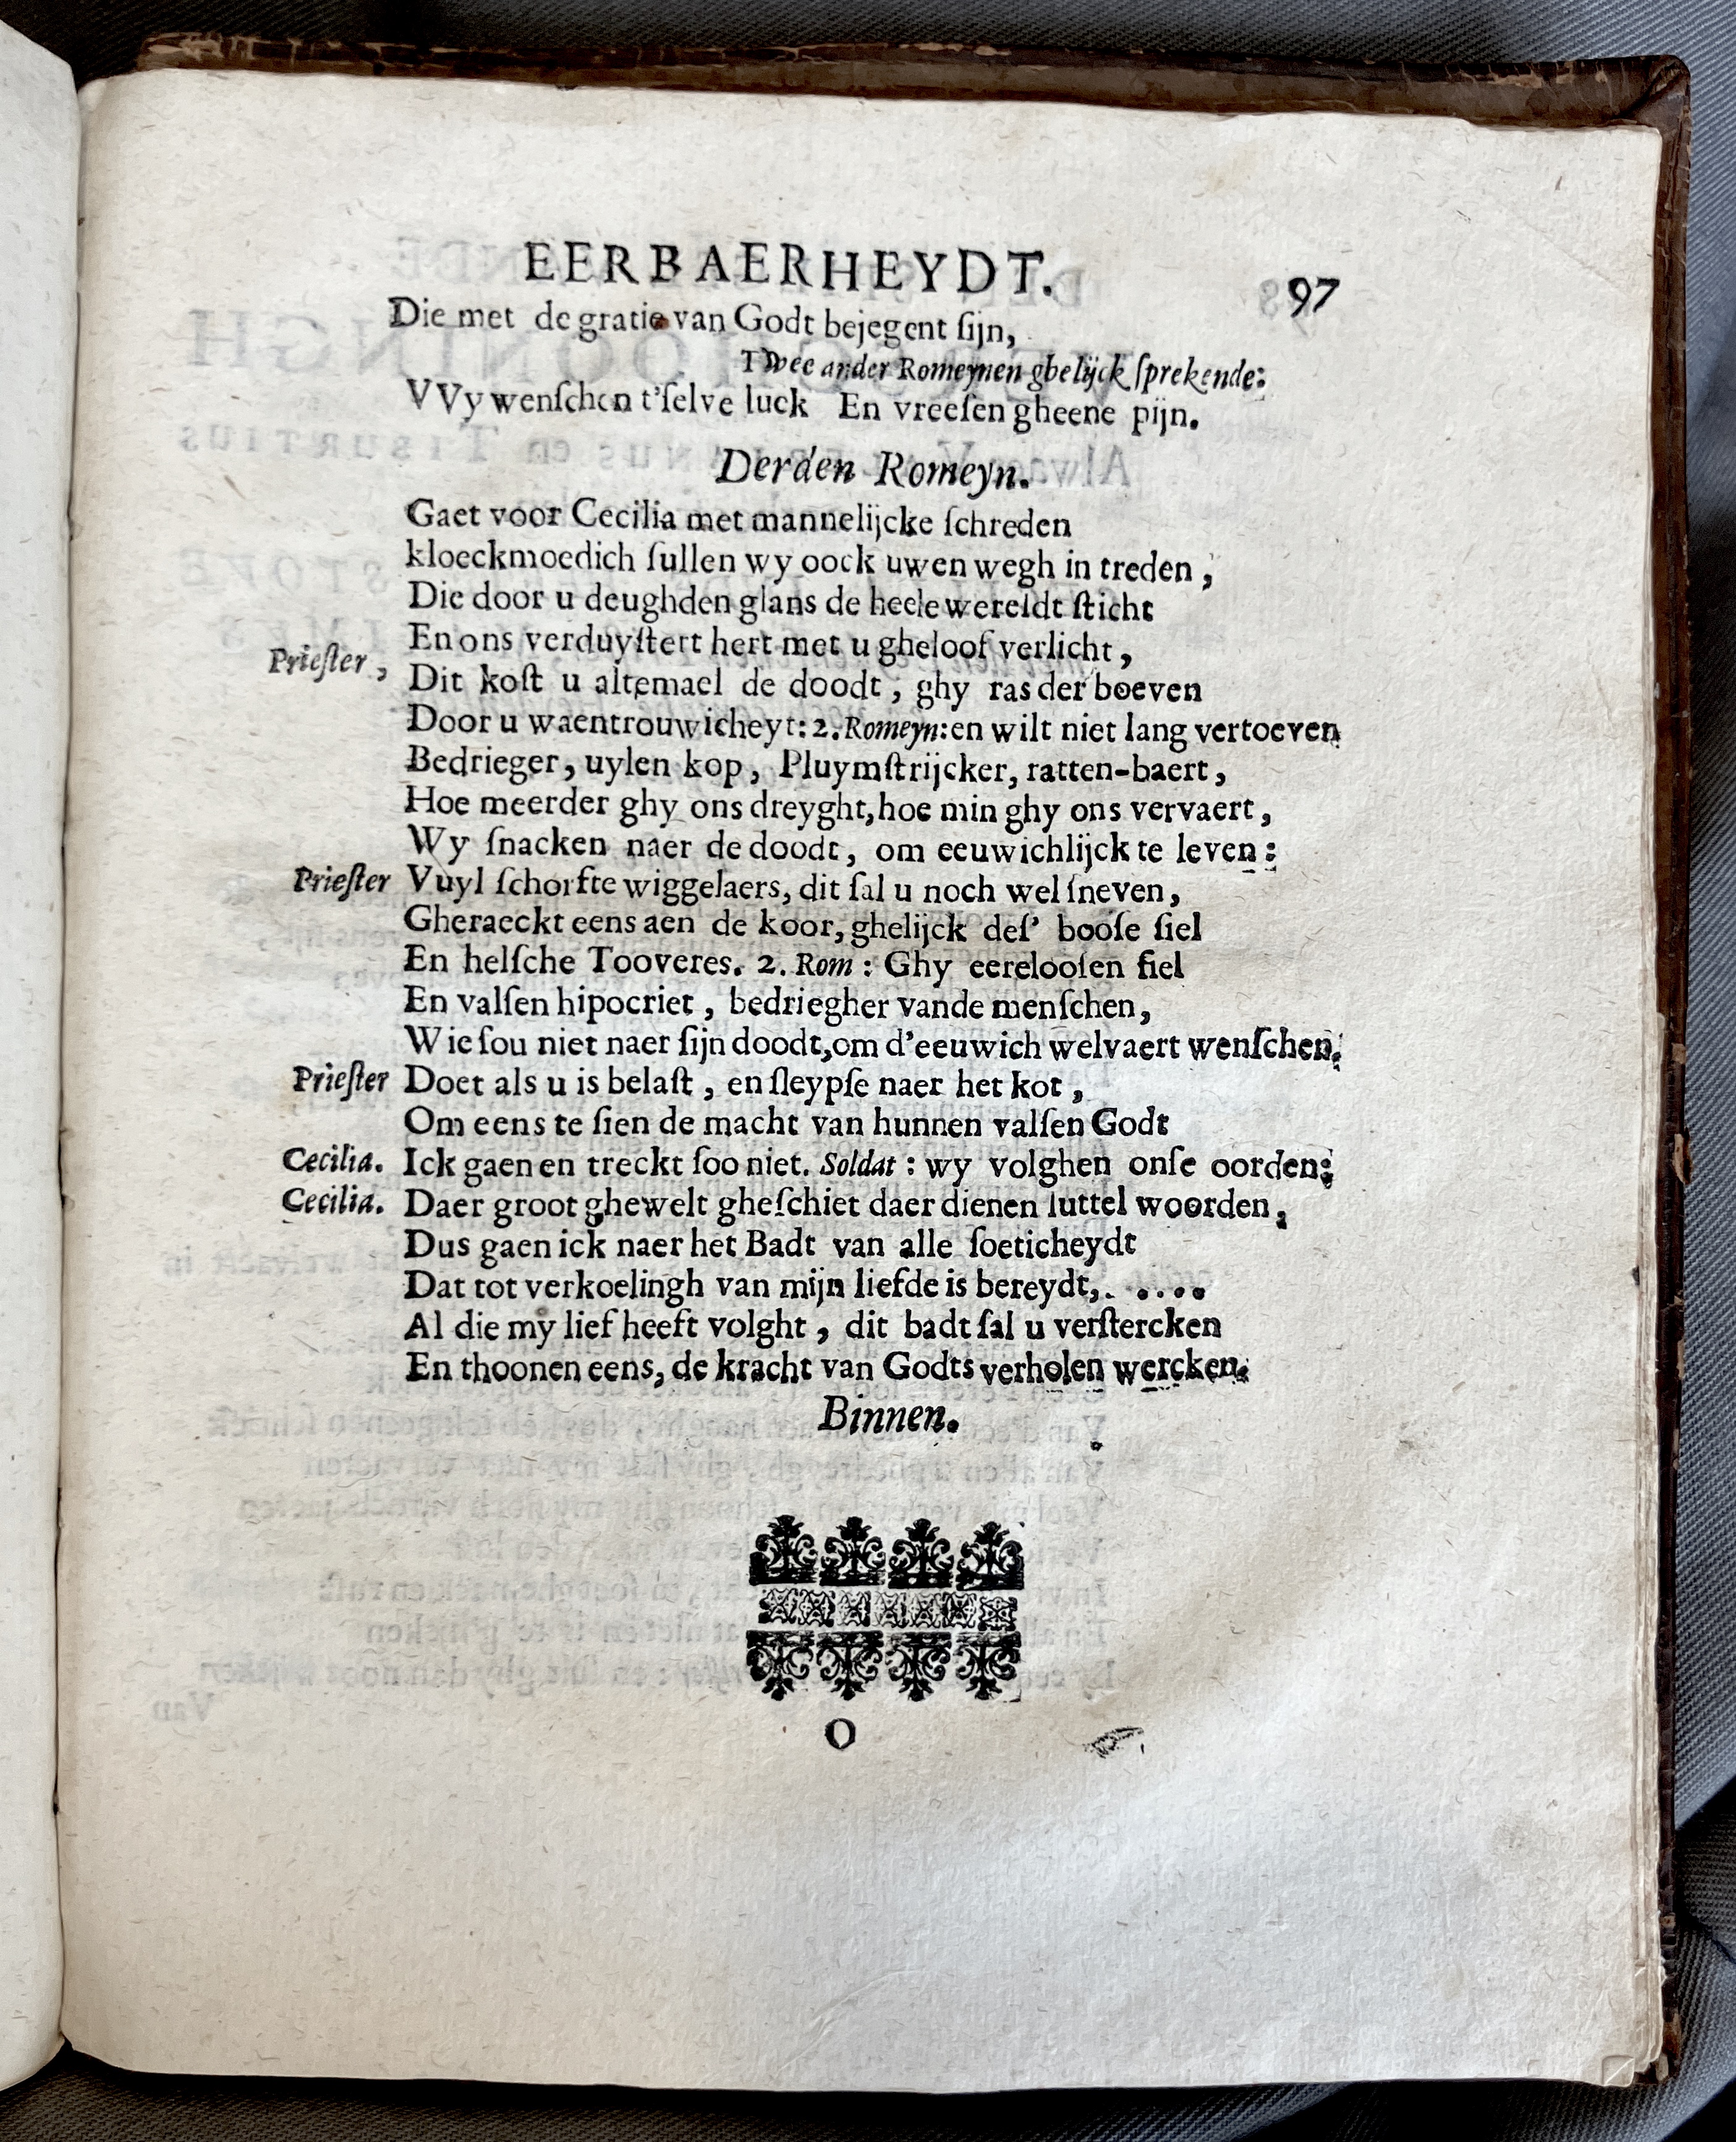 EERBAERHEYDT. 97
Die met de gratie van Godt bejegent ſijn,
Twee ander Romeynen ghelijck ſprekende:
VVy wenſchen t'ſelve luck En vreeſen gheene pijn.
Derden Romeyn.
Gaet voor Cecilia met mannelijcke ſchreden
kloeckmoedich ſullen wy oock uwen wegh in treden,
Die door u deughden glans de heele wereldt ſticht
En ons verduyſtert hert met u gheloof verlicht,
Prieſter, Dit koſt u altemael de doodt, ghy ras der boeven
Door u waentrouwicheyt: 2. Romeyn: en wilt niet lang vertoeven
Bedrieger, uylen kop, Pluymſtrijcker, ratten-baert,
Hoe meerder ghy ons dreyght, hoe min ghy ons vervaert,
Wy ſnacken naer de doodt, om eeuwichlijck te leven:
Prieſter Vuyl ſchorfte wiggelaers, dit ſal u noch wel ſneven,
Gheraeckt eens aen de koor, ghelijck deſ' booſe ſiel
En helſche Tooveres. 2. Rom: Ghy eerelooſen fiel
En valſen hipocriet, bedriegher vande menſchen,
Wie ſou niet naer ſijn doodt, om d'eeuwich welvaert wenſchen.
Prieſter Doet als u is belaſt, en ſleypſe naer het kot,
Om eens te ſien de macht van hunnen valſen Godt
Cecilia. Ick gaen en treckt ſoo niet. Soldat: wy volghen onſe oorden:
Cecilia. Daer groot ghewelt gheſchiet daer dienen luttel woorden,
Dus gaen ick naer het Badt van alle ſoeticheydt
Dat tot verkoelingh van mijn liefde is bereydt,. ....
Al die my lief heeft volght, dit badt ſal u verſtercken
En thoonen eens, de kracht van Godts verholen wercken.
Binnen.
O